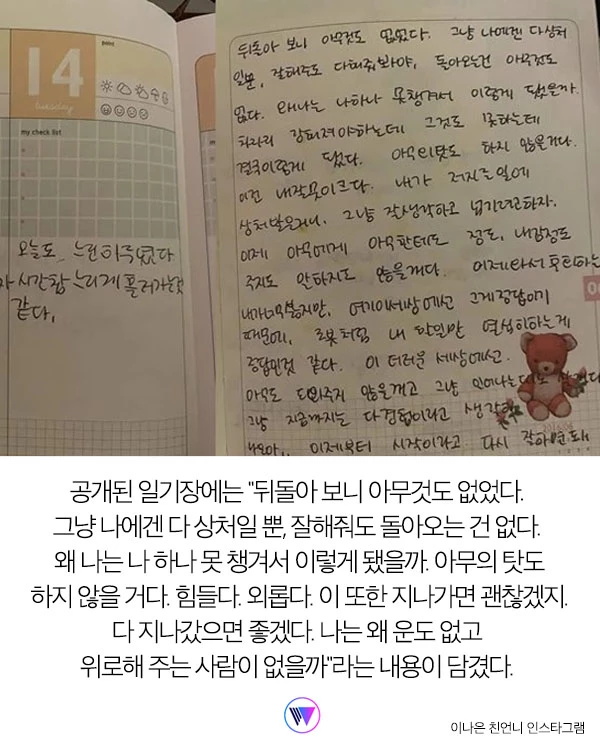 14
tuesday
point
my check list
오늘도 느린 하루였다
시간참 느리게 흘러가는것
같다.
뒤돌아 보니 아무것도 없었다. 그냥 나에겐 다 상처
일뿐, 잘해줘도 다해줘봐야, 돌아오는건 아무것도
없다. 왜나는 나하나 못챙겨서 이렇게 됐을까.
차라리 강해져야하는데 그것도 못하는데
결국이렇게 됐다. 아무의탓도 하지 않을거다.
이건 내잘못이크다. 내가 저지른일에
상처받은거니, 그냥 잘생각하고 넘기려고하자.
이제 아무에게 아무한테도 정도, 내감정도
주지도 안하지도 않을거다. 이제와서 후회하는
내가너무웃지만, 여기이세상에선 그게정답이기
때문에, 로봇처럼 내 할일만 열심히하는게
정답인것 같다. 이 더러운 세상에선.
아무도 도와주지 않을꺼고 그냥
그냥 지금까지는 다경험이라고 생각
이제부터 시작이라고 다시
공개된 일기장에는 "뒤돌아 보니 아무것도 없었다.
그냥 나에겐 다 상처일 뿐, 잘해줘도 돌아오는 건 없다.
왜 나는 나 하나 못 챙겨서 이렇게 됐을까. 아무의 탓도
하지 않을 거다. 힘들다. 외롭다. 이 또한 지나가면 괜찮겠지.
다 지나갔으면 좋겠다. 나는 왜 운도 없고
위로해 주는 사람이 없을까"라는 내용이 담겼다.
이나은 친언니 인스타그램